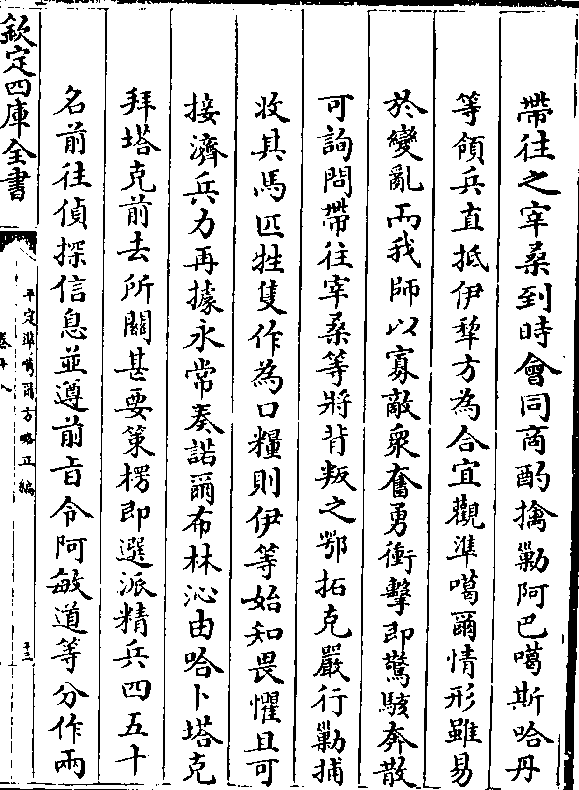 帶往之宰桑到時會同商酌擒勦阿巴噶斯哈丹
等領兵直抵伊犂方為合宜觀準噶爾情形雖易
於變亂而我師以寡敵衆奮勇衝擊即驚駭奔散
可詢問帶往宰桑等將背叛之鄂拓克嚴行勦捕
收其馬匹牲隻作為口糧則伊等始知畏懼且可
接濟兵力再據永常奏諾爾布林沁由哈卜塔克
拜塔克前去所關甚要策楞即選派精兵四五十
名前往偵探信息並遵前㫖令阿敏道等分作兩
欽定四庫全書
平定準噶爾方略正編